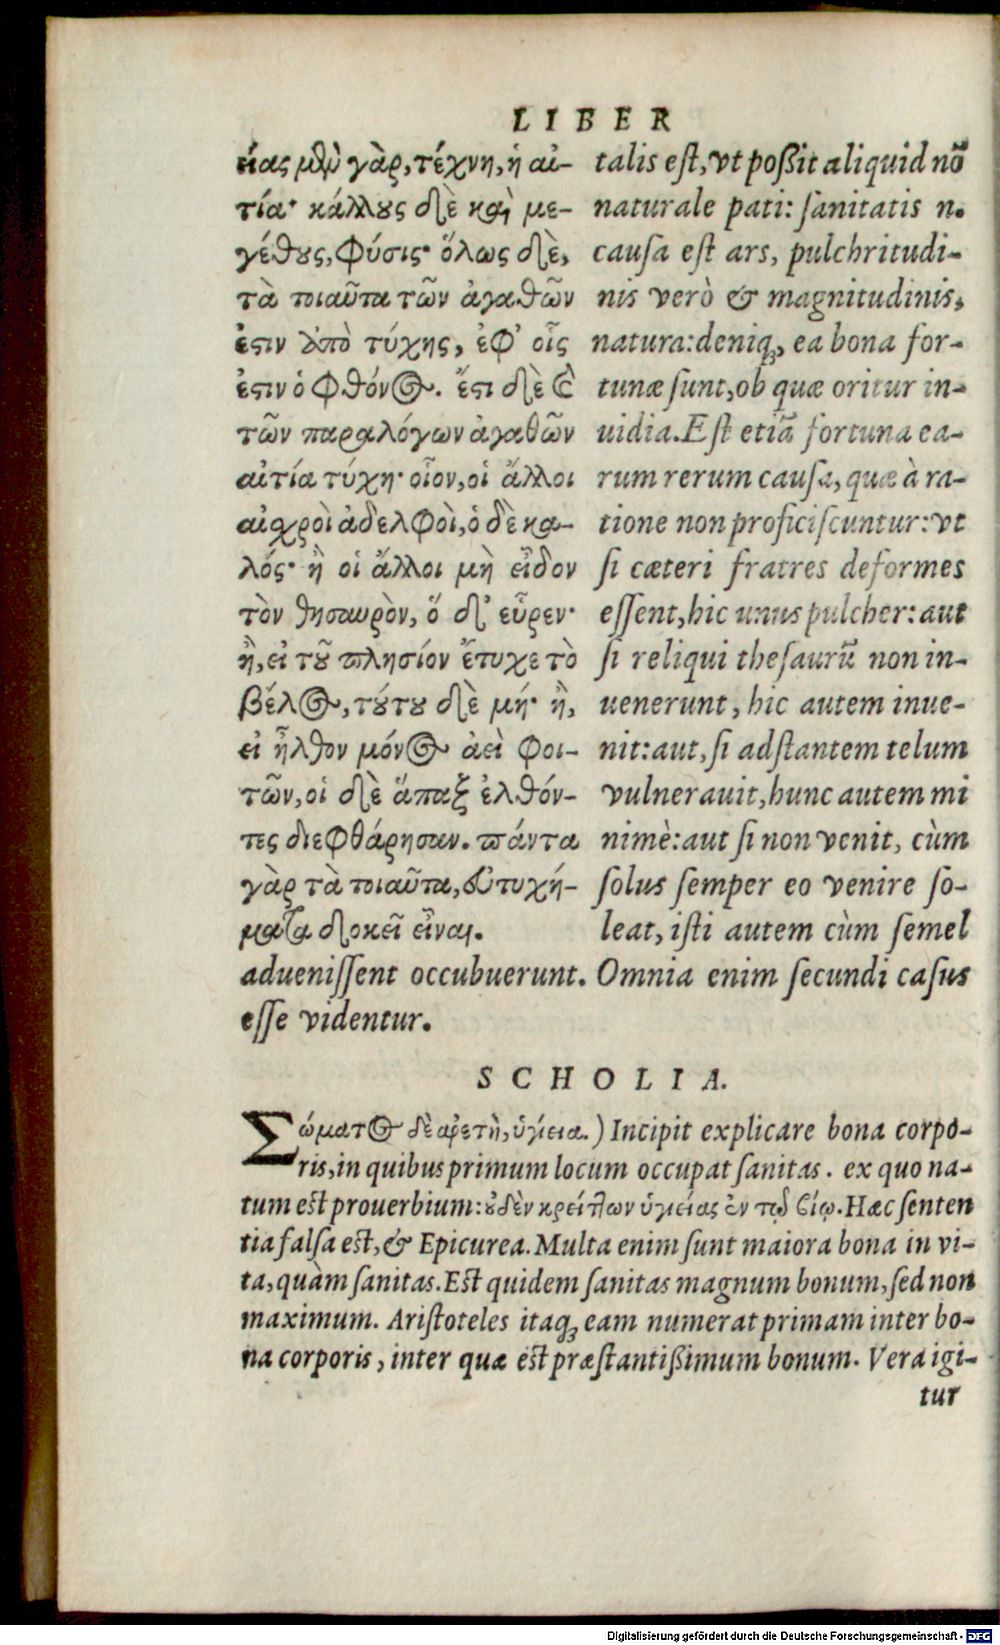 LIBER
είας μὲν γὰρ, τέχνη, ἡ αἰ-
τία· κάλλους δὲ καὶ με-
γέθους, φύσις· ὅλως δὲ,
τὰ τοιαῦτα τῶν ἀγαθῶν
ἐστιν ἀπὸ τύχης, ἐφ' οἷς
ἐστιν ὁ φθόνος. ἔστι δὲ καὶ
τῶν παραλόγων ἀγαθῶν
αἰτία τύχη· οἷον, οἱ ἄλλοι
αἰσχροὶ ἀδελφοὶ, ὁ δὲ κα-
λός· ἢ οἱ ἄλλοι μὴ εἶδον
τὸν θησαυρὸν, ὅ δ' εὗρεν·
ἢ, εἰ τοῦ πλησίον ἔτυχε τὸ
βέλος, τούτου δὲ μή· ἢ,
εἰ ἦλθον μόνος ἀεὶ φοι-
τῶν, οἱ δὲ ἅπαξ ἐλθόν-
τες διεφθάρησαν. πάντα
γὰρ τὰ τοιαῦτα, εὐτυχή-
ματα δοκεῖ εἶναι.
talis est, vt poßit aliquid nõ
naturale pati: sanitatis n.
causa est ars, pulchritudi-
nis verò & magnitudinis,
natura: deniq;, ea bona for-
tunæ sunt, ob quæ oritur in-
uidia. Est etiã fortuna ea-
rum rerum causa, quæ à ra-
tione non proficiscuntur: vt
si cæteri fratres deformes
essent, hic unus pulcher: aut
si reliqui thesaurũ non in-
uenerunt, hic autem inue-
nit: aut, si adstantem telum
vulnerauit, hunc autem mi
nimè: aut si non venit, cùm
solus semper eo venire so-
leat, isti autem cùm semel
aduenissent occubuerunt. Omnia enim secundi casus
esse videntur.
SCHOLIA.
Σώματος δὲ ἀρετὴ, ὑγίεια.) Incipit explicare bona corpo-
ris, in quibus primum locum occupat sanitas. ex quo na-
tum est prouerbium: οὐδὲν κρείττων ὑγιείας ἐν τῷ βίῳ. Hæc senten
tia falsa est, & Epicurea. Multa enim sunt maiora bona in vi-
ta, quàm sanitas. Est quidem sanitas magnum bonum, sed non
maximum. Aristoteles itaq; eam numerat primam inter bo-
na corporis, inter quæ est præstantißimum bonum. Vera igi-
tur
Digitalisierung gefördert durch die Deutsche Forschungsgemeinschaft - DFG